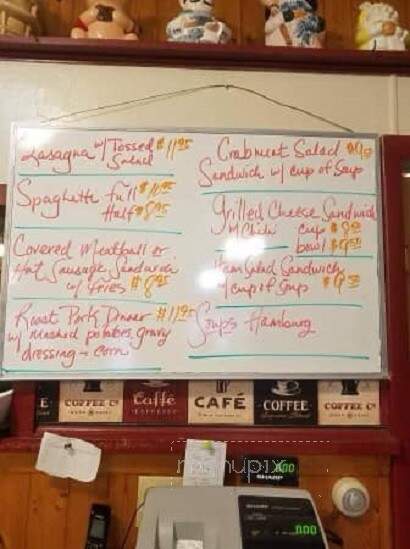 Lasagna w/ Tossed $11.95
Salad
Spaghetti Full $10.95
Half $8.95
Covered Meatball or
Hot Sausage Sandwich
w/ fries $8.95
Roast Pork Dinner $11.95
w/ Mashed potatoes, gravy
dressing - corn
Crabmeat Salad
Sandwich w/ cup of Soup
Grilled Cheese Sandwich
w/ Chili cup
bowl
Ham Salad Sandwich
w/ cup of Soup
Soups Hamburg
COFFEE CO
Caffé
ESPRESSO
CAFÉ
COFFEE
COFFEE CO
menupix
SHARP
0.00
SHARP
0.00